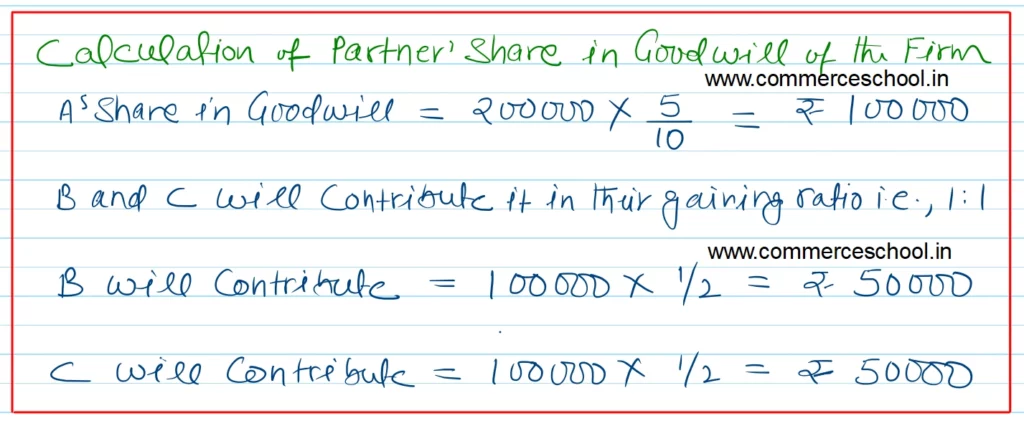 Calculation of Partner' Share in Goodwill of the Firm
www.commerceschool.in
A's Share in Goodwill = 200000 × 5/10 = ₹ 100000
B and C will Contribute it in their gaining ratio i.e., 1:1
www.commerceschool.in
B will Contribute = 100000 × 1/2 = ₹ 50000
C will Contribute = 100000 × 1/2 = ₹ 50000